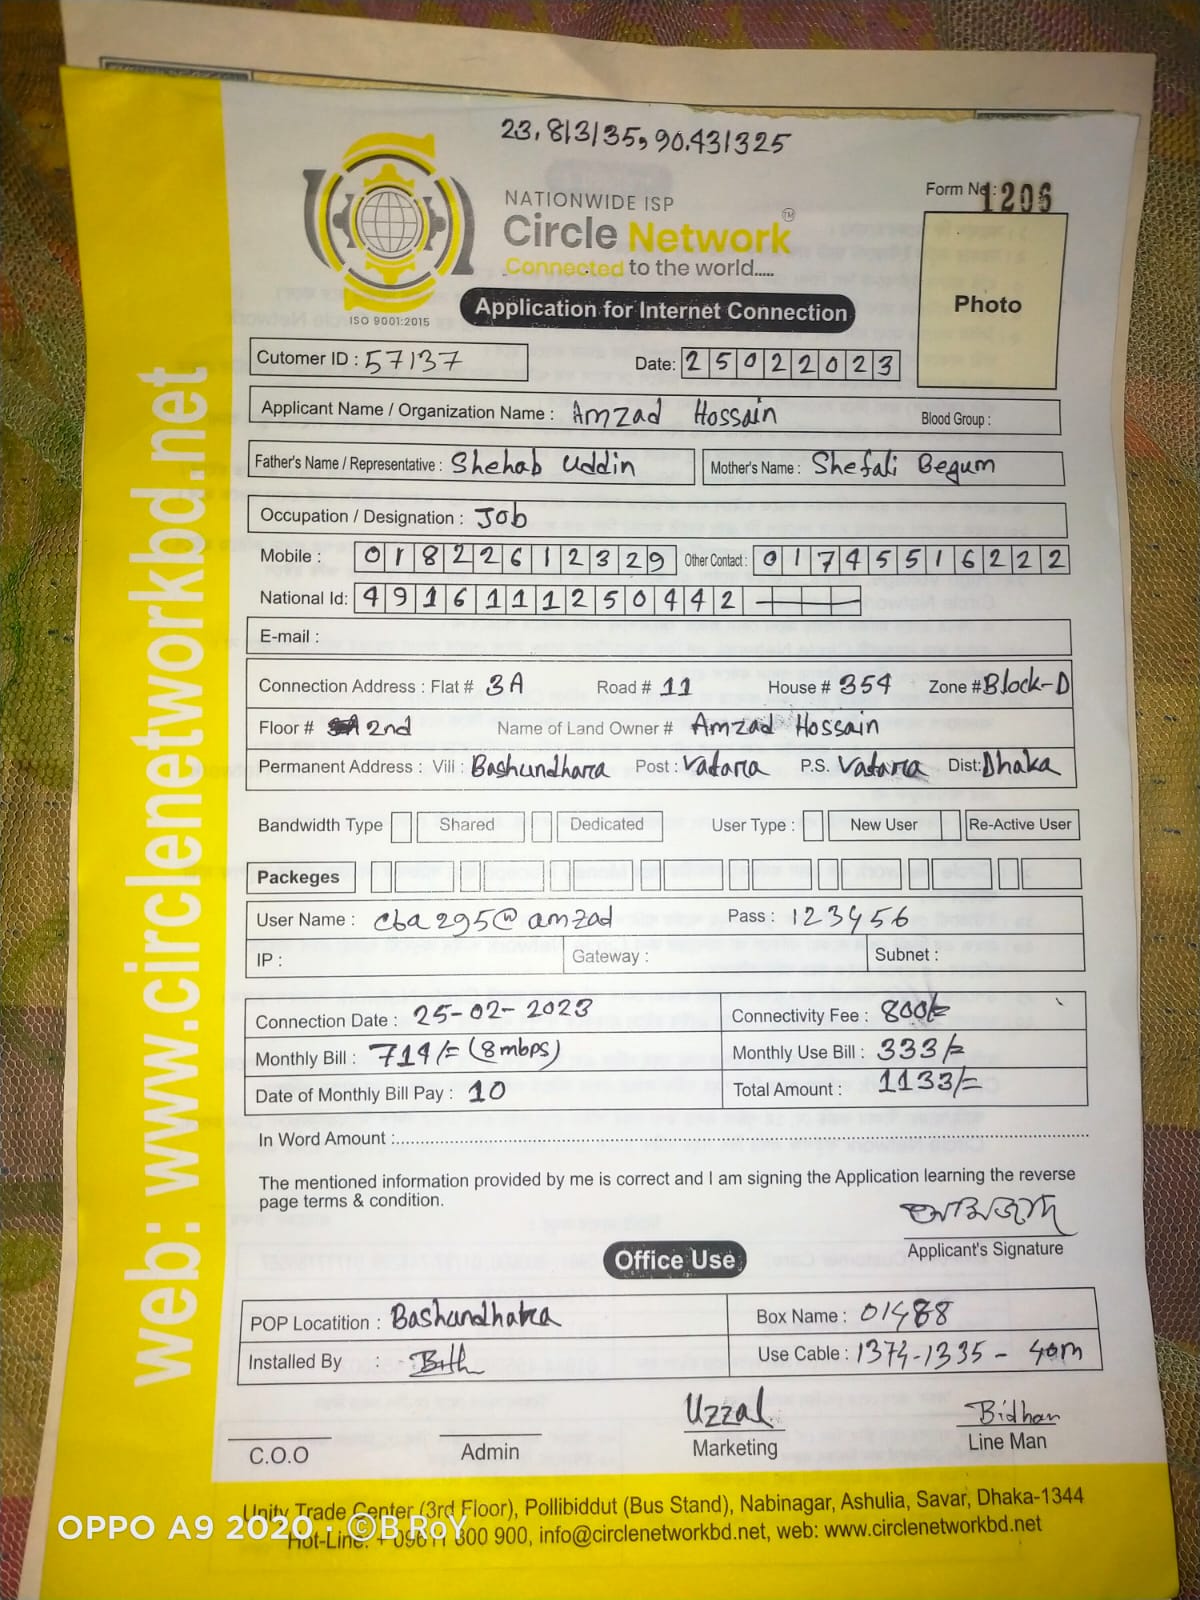 23.813135, 90.431325
NATIONWIDE ISP
Circle Network TM
Connected to the world.....
ISO 9001:2015
Form No : 1206
Photo
Application for Internet Connection
Cutomer ID : 57137 Date: 25022023
Applicant Name / Organization Name : Amzad Hossain Blood Group :
Father's Name / Representative : Shehab Uddin Mother's Name : Shefali Begum
Occupation / Designation : Job
Mobile : 01822612329 Other Contact : 01745516222
National Id: 4916111250442
E-mail :
Connection Address : Flat # 3A Road # 11 House # 354 Zone # Block-D
Floor # 2nd Name of Land Owner # Amzad Hossain
Permanent Address : Vill : Bashundhara Post : Vatara P.S. Vatara Dist: Dhaka
Bandwidth Type Shared Dedicated User Type : New User Re-Active User
Packeges
User Name : cba295@amzad Pass : 123456
IP : Gateway : Subnet :
Connection Date : 25-02-2023 Connectivity Fee : 800/=
Monthly Bill : 714/= (8mbps) Monthly Use Bill : 333/=
Date of Monthly Bill Pay : 10 Total Amount : 1133/=
In Word Amount :
The mentioned information provided by me is correct and I am signing the Application learning the reverse
page terms & condition.
আমজাদ
Applicant's Signature
Office Use
POP Locatition : Bashundhara Box Name : 01488
Installed By : Use Cable : 1374-1335 - 40m
Uzzal Bidhan
C.O.O Admin Marketing Line Man
Unity Trade Center (3rd Floor), Pollibiddut (Bus Stand), Nabinagar, Ashulia, Savar, Dhaka-1344
Hot-Line: + 09611 800 900, info@circlenetworkbd.net, web: www.circlenetworkbd.net
web: www.circlenetworkbd.net
OPPO A9 2020 · ©B RoY